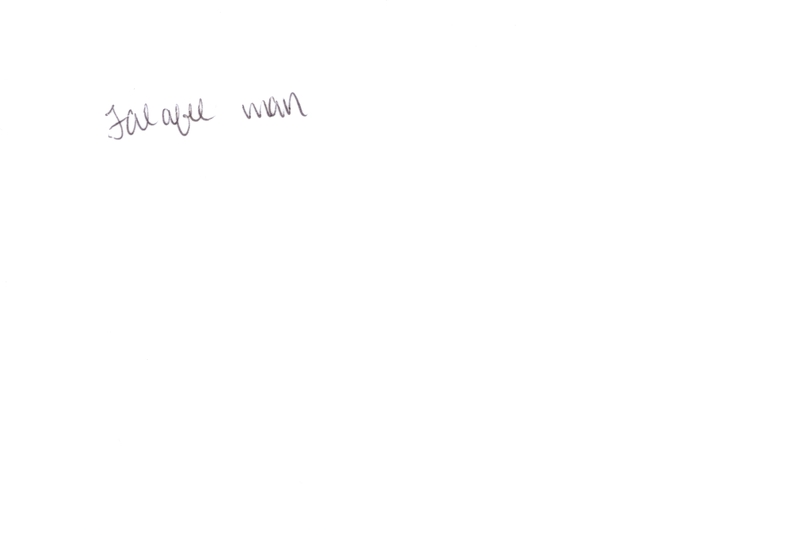 Falafel man